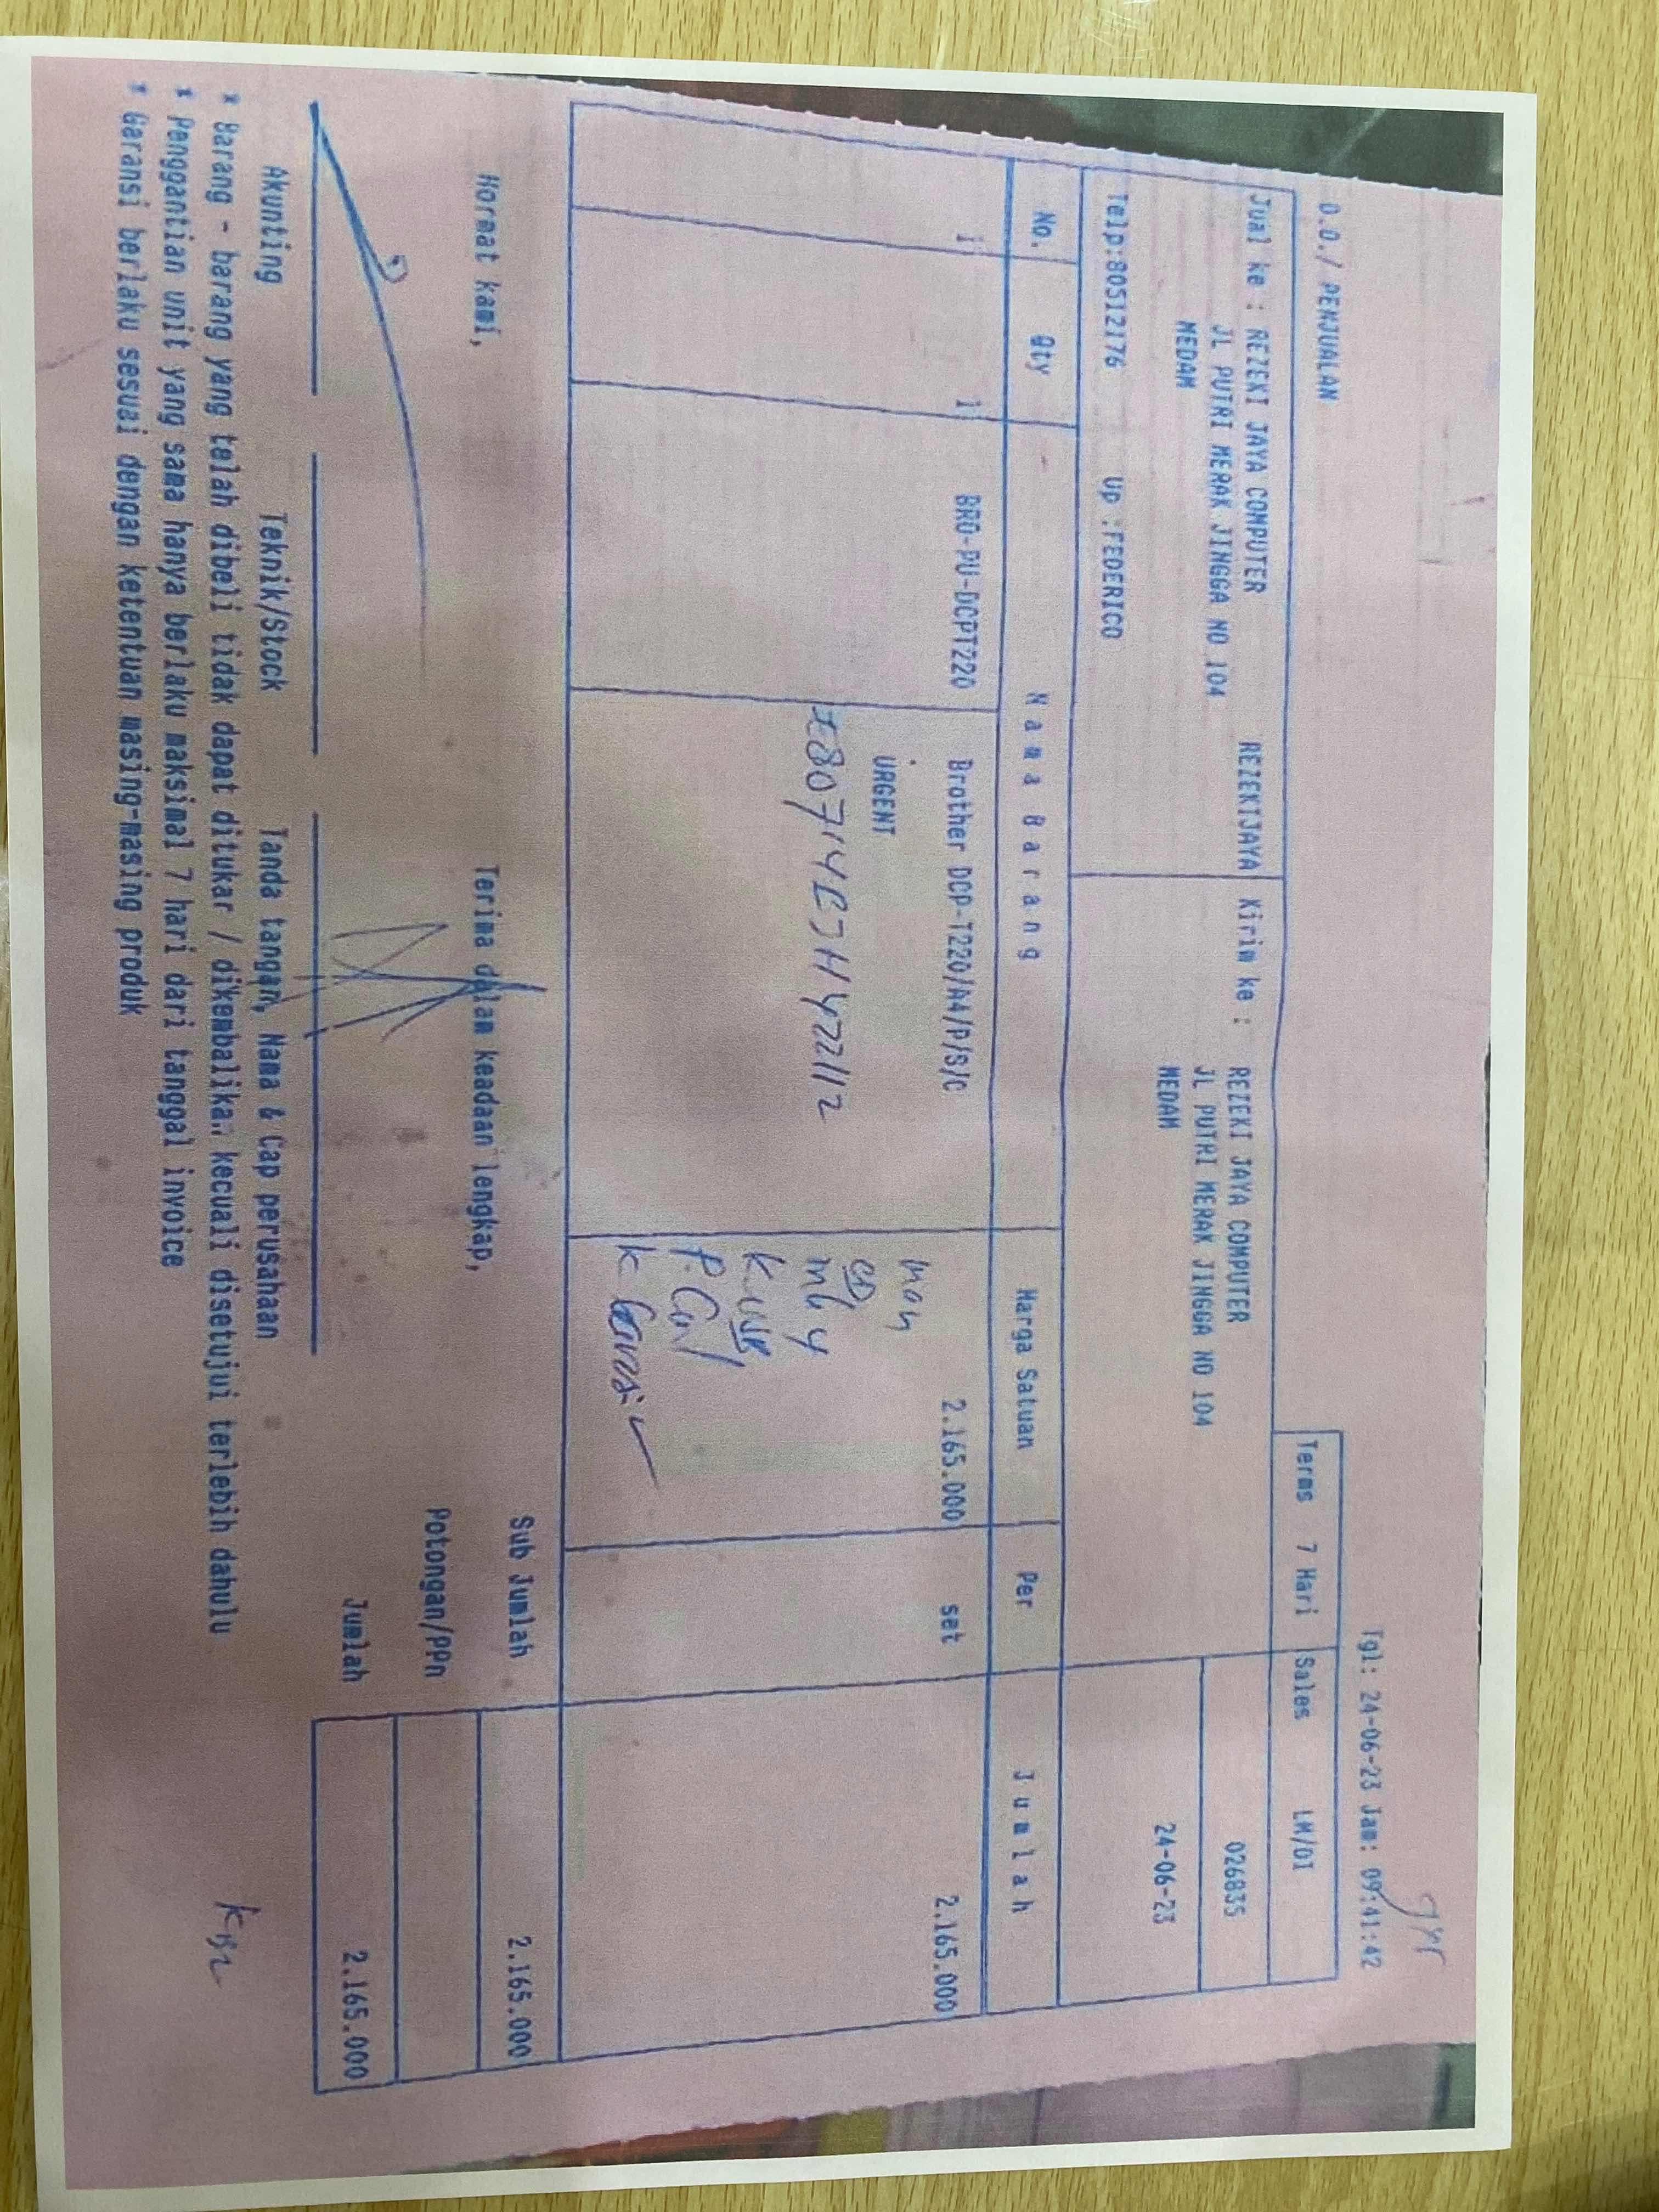 Tgl: 24-06-23 Jam: 09:41:42
D.O./ PENJUALAN
Terms 7 Hari Sales LM/DI
Jual ke : REZEKI JAYA COMPUTER REZEKIJAYA Kirim ke : REZEKI JAYA COMPUTER 026835
JL PUTRI MERAK JINGGA NO 104 JL PUTRI MERAK JINGGA NO 104
MEDAN MEDAN 24-06-23
Telp:80512176 Up :FEDERICO
No. Qty Nama Barang Harga Satuan Per Jumlah
1 1 BRO-PU-DCPT220 Brother DCP-T220/A4/P/S/C 2.165.000 set 2.165.000
URGENT
CD
Hormat kami, Terima dalam keadaan lengkap, Sub Jumlah 2.165.000
Potongan/PPn
Jumlah 2.165.000
Akunting Teknik/Stock Tanda tangan, Nama & Cap perusahaan
* Barang - barang yang telah dibeli tidak dapat ditukar / dikembalikan kecuali disetujui terlebih dahulu
* Penggantian unit yang sama hanya berlaku maksimal 7 hari dari tanggal invoice
* Garansi berlaku sesuai dengan ketentuan masing-masing produk